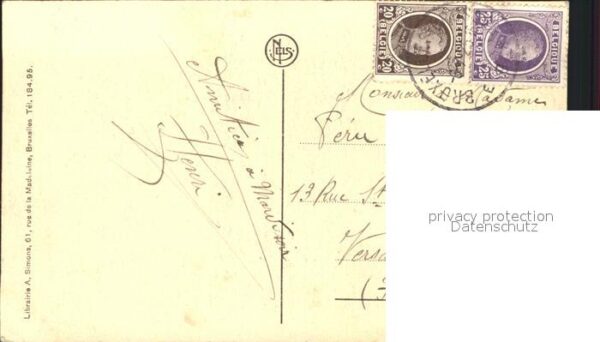 Librairie A. Simons, 61, rue de la Madeleine, Bruxelles Tél. 184.95.
Amitiés à Mardi soir
Henri
20 20
BELGIE BELGIQUE
25 25
BELGIE BELGIQUE
BRUX
Monsieur Madame
Péru
13 Rue St
Versa
privacy protection
Datenschutz